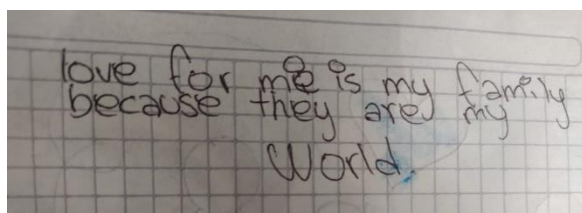 love for me is my family
because they are my
World.